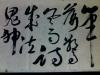 筆
落驚風雨詩
成泣鬼神